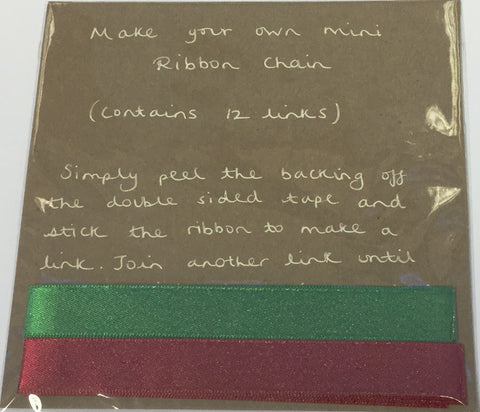 Make your own mini
Ribbon Chain
(contains 12 links)
Simply peel the backing off
the double sided tape and
stick the ribbon to make a
link. Join another link until